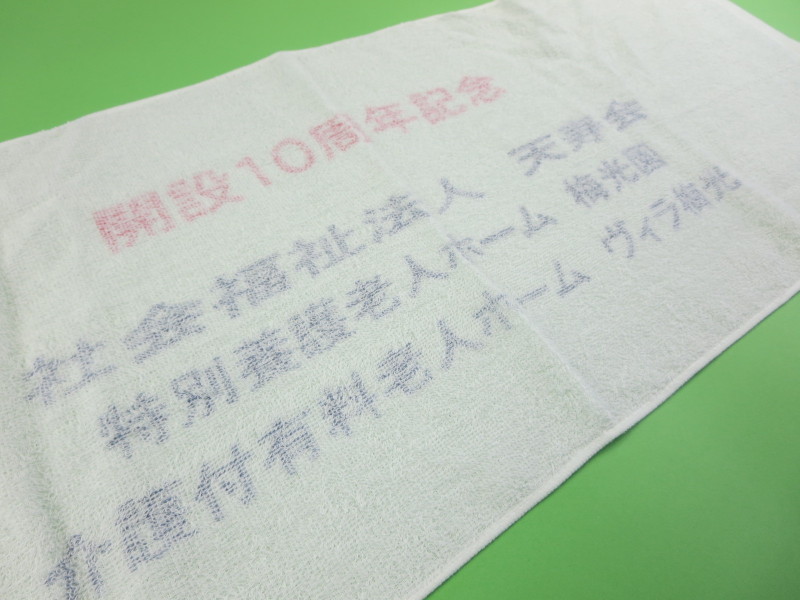 開設10周年記念
社会福祉法人 天寿会
特別養護老人ホーム 梅光園
介護付有料老人ホーム ヴィラ梅光